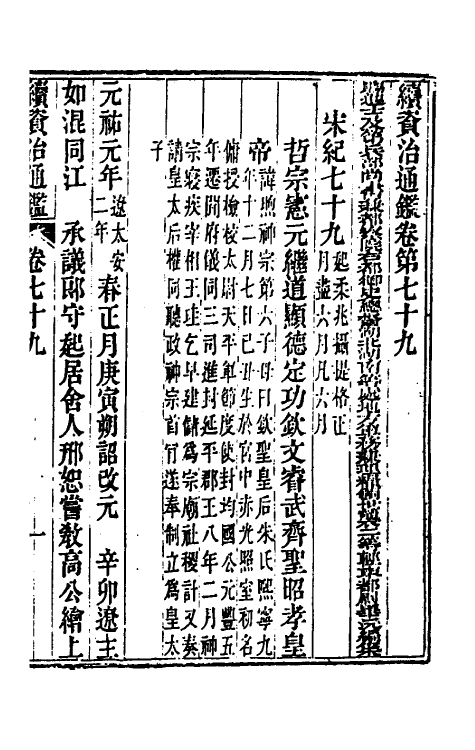 續資治通鑑卷第七十九
賜進士及第兵部尚書兼都察院右都御史總督湖北湖南等處地方軍務兼理糧餉世襲二等輕車都尉畢沅編集
宋紀七十九 起柔兆攝提格正
月盡六月凡六月
哲宗憲元繼道顯德定功欽文睿武齊聖昭孝皇
帝 諱煦神宗第六子母曰欽聖皇后朱氏熙寧九
年十二月七日己丑生於宮中赤光照室初名
傭授檢校太尉天平軍節度使封均國公元豐五
年遷開府儀同三司進封延平郡王八年二月神
宗寢疾宰相王珪乞早建儲爲宗廟社稷計又奏
請皇太后權同聽政神宗首肯遂奉制立爲皇太
子
元祐元年 遼太安
二年 春正月庚寅朔詔改元 辛卯遼主
如混同江 承議郎守起居舍人邢恕嘗敎高公繪上
續資治通鑑 卷七十九 一